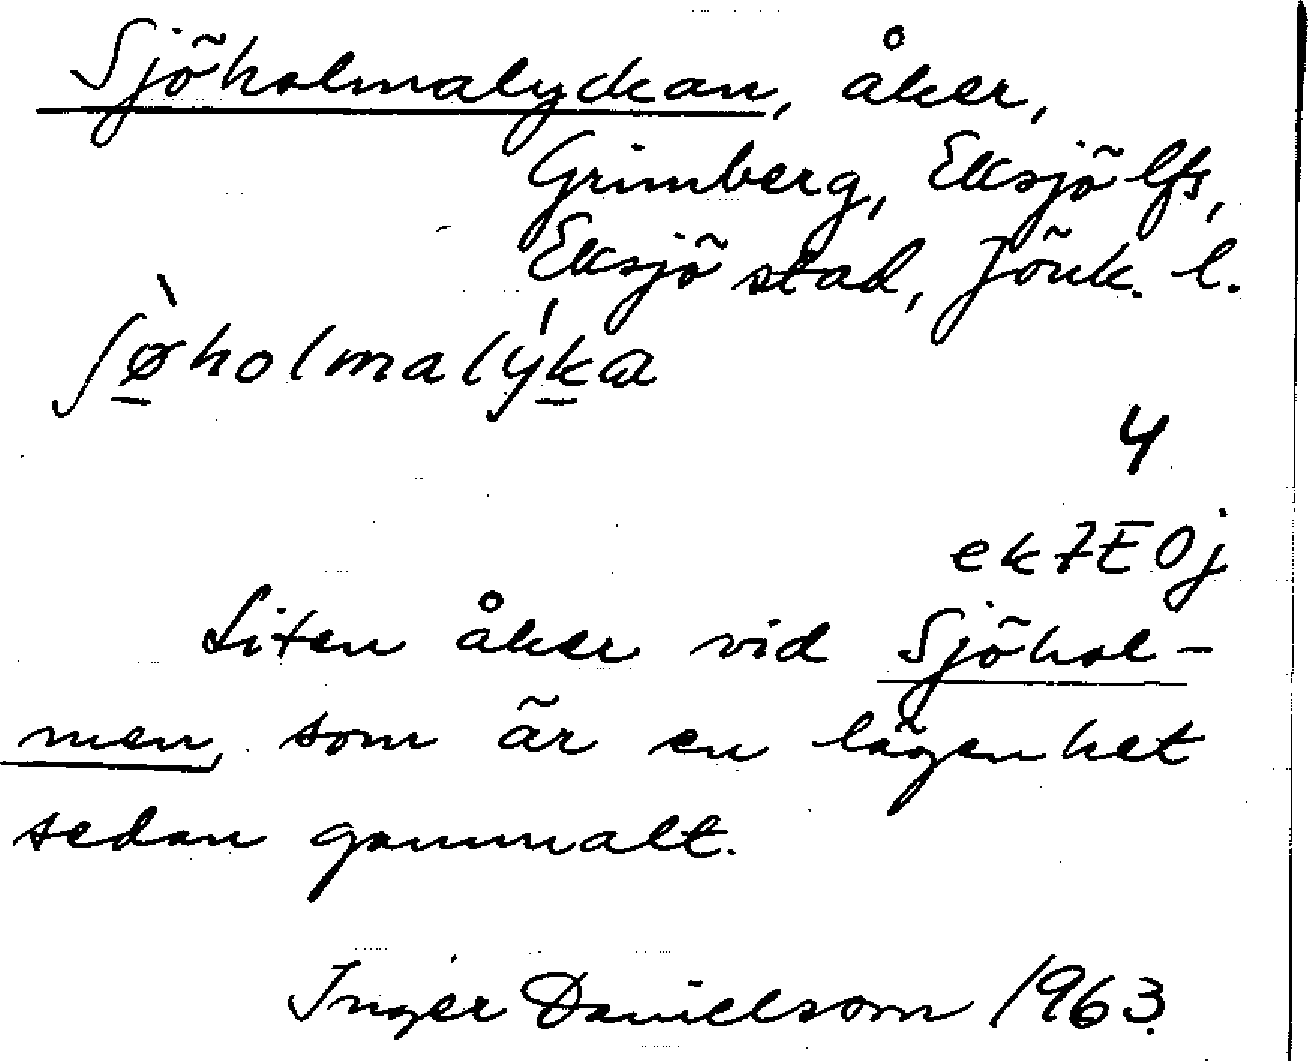 Sjöholmalyckan, åker,
Grimberg, Eksjö lfs,
Eksjö stad, Jönk. l.
ʃø̀holmalýka
4
ek 7E0j
Liten åker vid Sjöhol-
men, som är en lägenhet
sedan gammalt.
Inger Danielsson 1963.